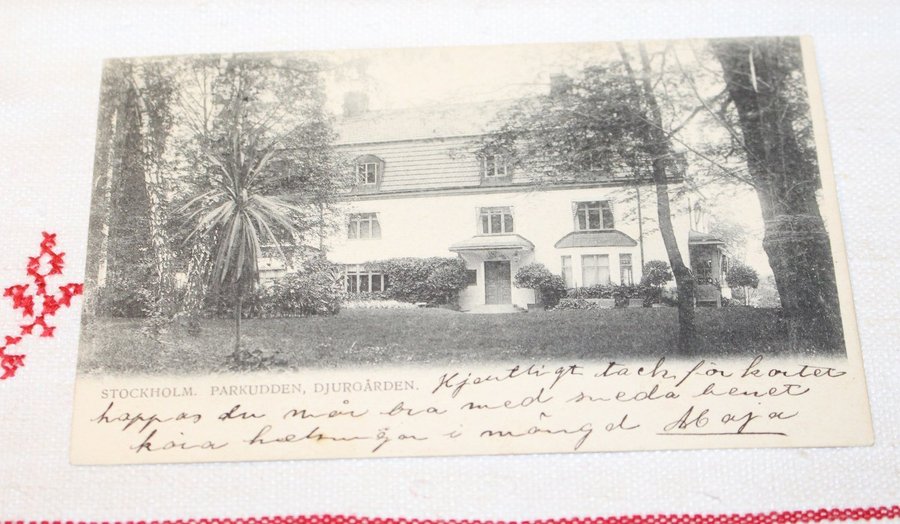 STOCKHOLM. PARKUDDEN, DJURGÅRDEN. Hjertligt tack för kortet
hoppas du mår bra med sneda benet
kära helsningar i mängd Maja